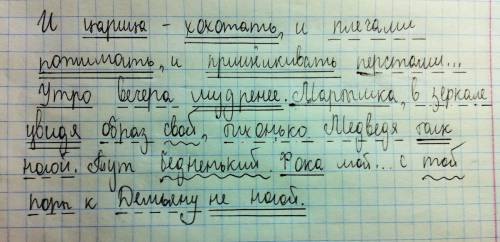 И царица - хохотать, и плечами
пожимать, и прищёлкивать перстами...
Утро вечера мудренее. Мартышка, в зеркале
увидя образ свой, тихонько Медведя толк
ногой. Тут бедненький Фока мой... с той
поры к Демьяну не ногой.